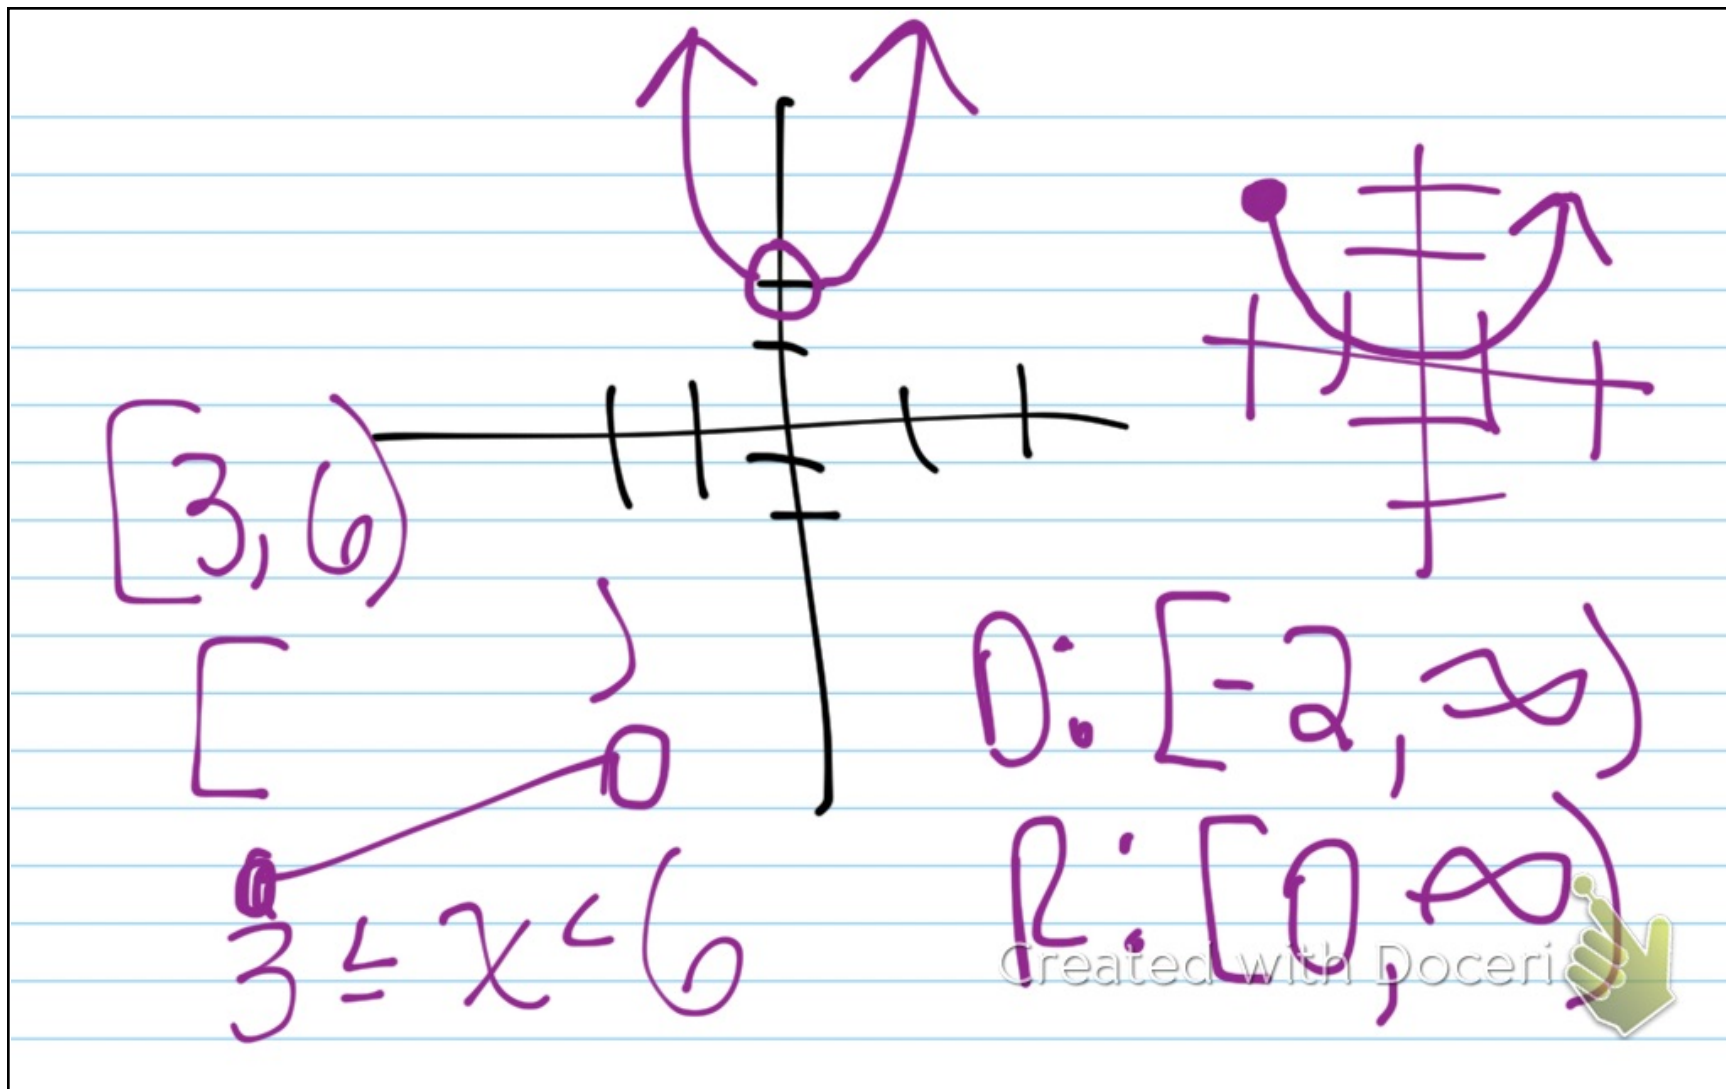 [3, 6)
[ )
3 ≤ x < 6
D: [-2, ∞)
R: [0, ∞)
Created with Doceri